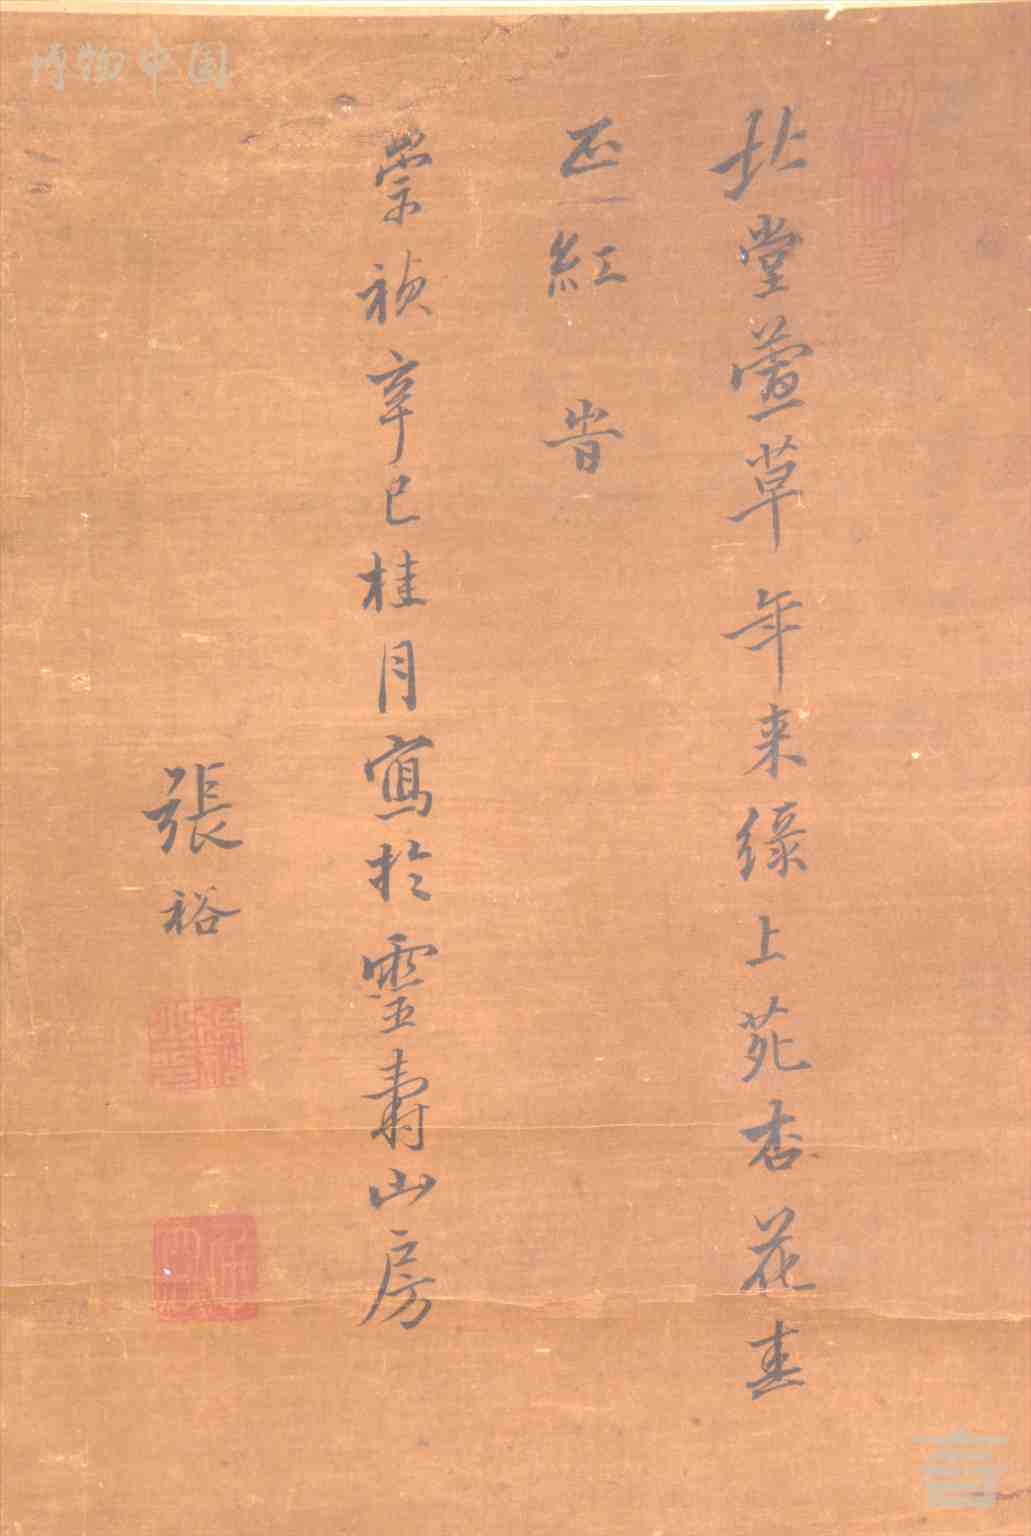 博物中国
北堂萱草年来綠上苑杏花
正紅 旹
崇禎辛巳桂月寫於靈壽山房
張裕